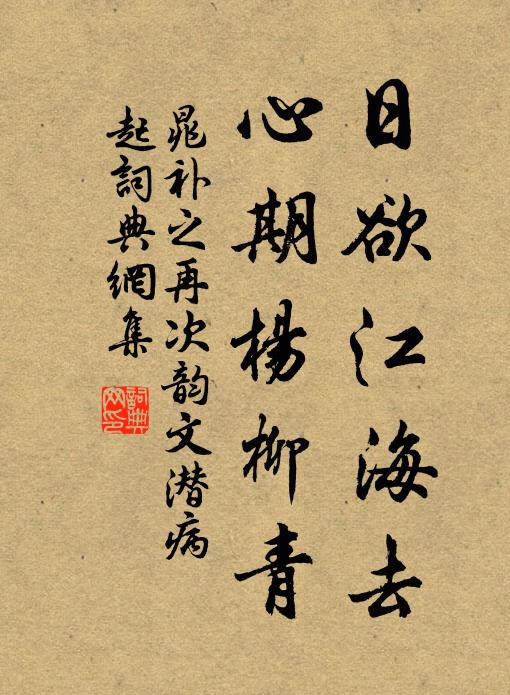 日欲江海去
心期楊柳青
晁补之再次韵文潜病
起詞典網集
詞典
網印